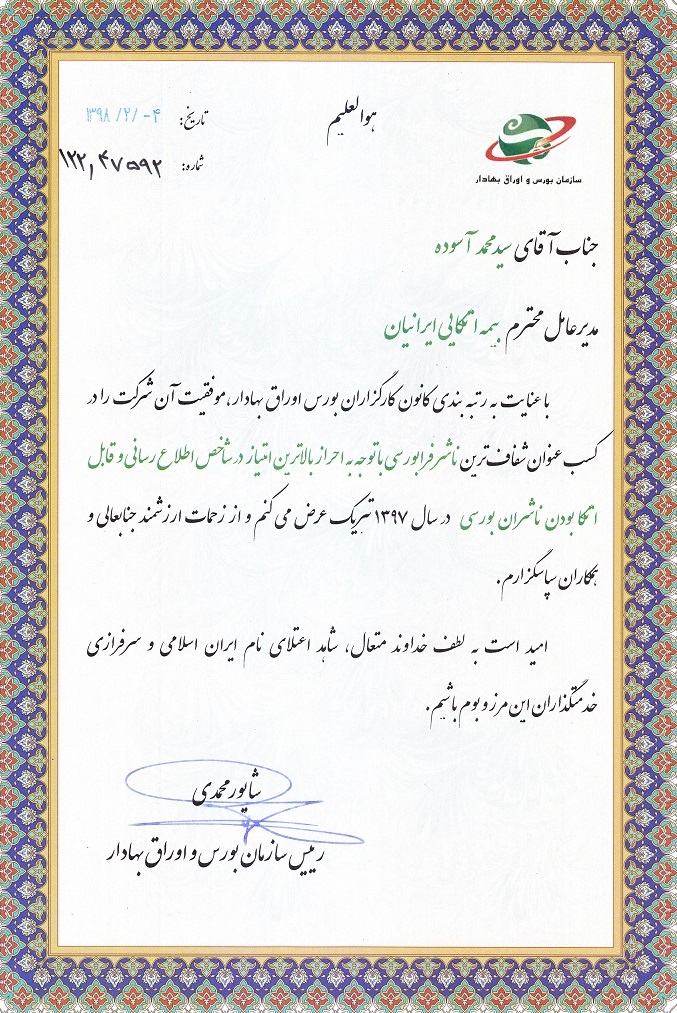 هوالعلیم
تاریخ: ۱۳۹۸/۲/-۴
شماره: ۱۲۲,۴۷۵۹۲
سازمان بورس و اوراق بهادار
جناب آقای سید محمد آسوده
مدیرعامل محترم بیمه اتکایی ایرانیان
با عنایت به رتبه بندی کانون کارگزاران بورس اوراق بهادار، موفقیت آن شرکت را در
کسب عنوان شفاف ترین ناشر فرابورسی با توجه به احراز بالاترین امتیاز در شاخص اطلاع رسانی و قابل
اتکا بودن ناشران بورسی در سال ۱۳۹۷ تبریک عرض می کنم و از زحمات ارزشمند جنابعالی و
همکاران سپاسگزارم.
امید است به لطف خداوند متعال، شاهد اعتلای نام ایران اسلامی و سرفرازی
خدمتگذاران این مرز و بوم باشیم.
شاپور محمدی
رییس سازمان بورس و اوراق بهادار